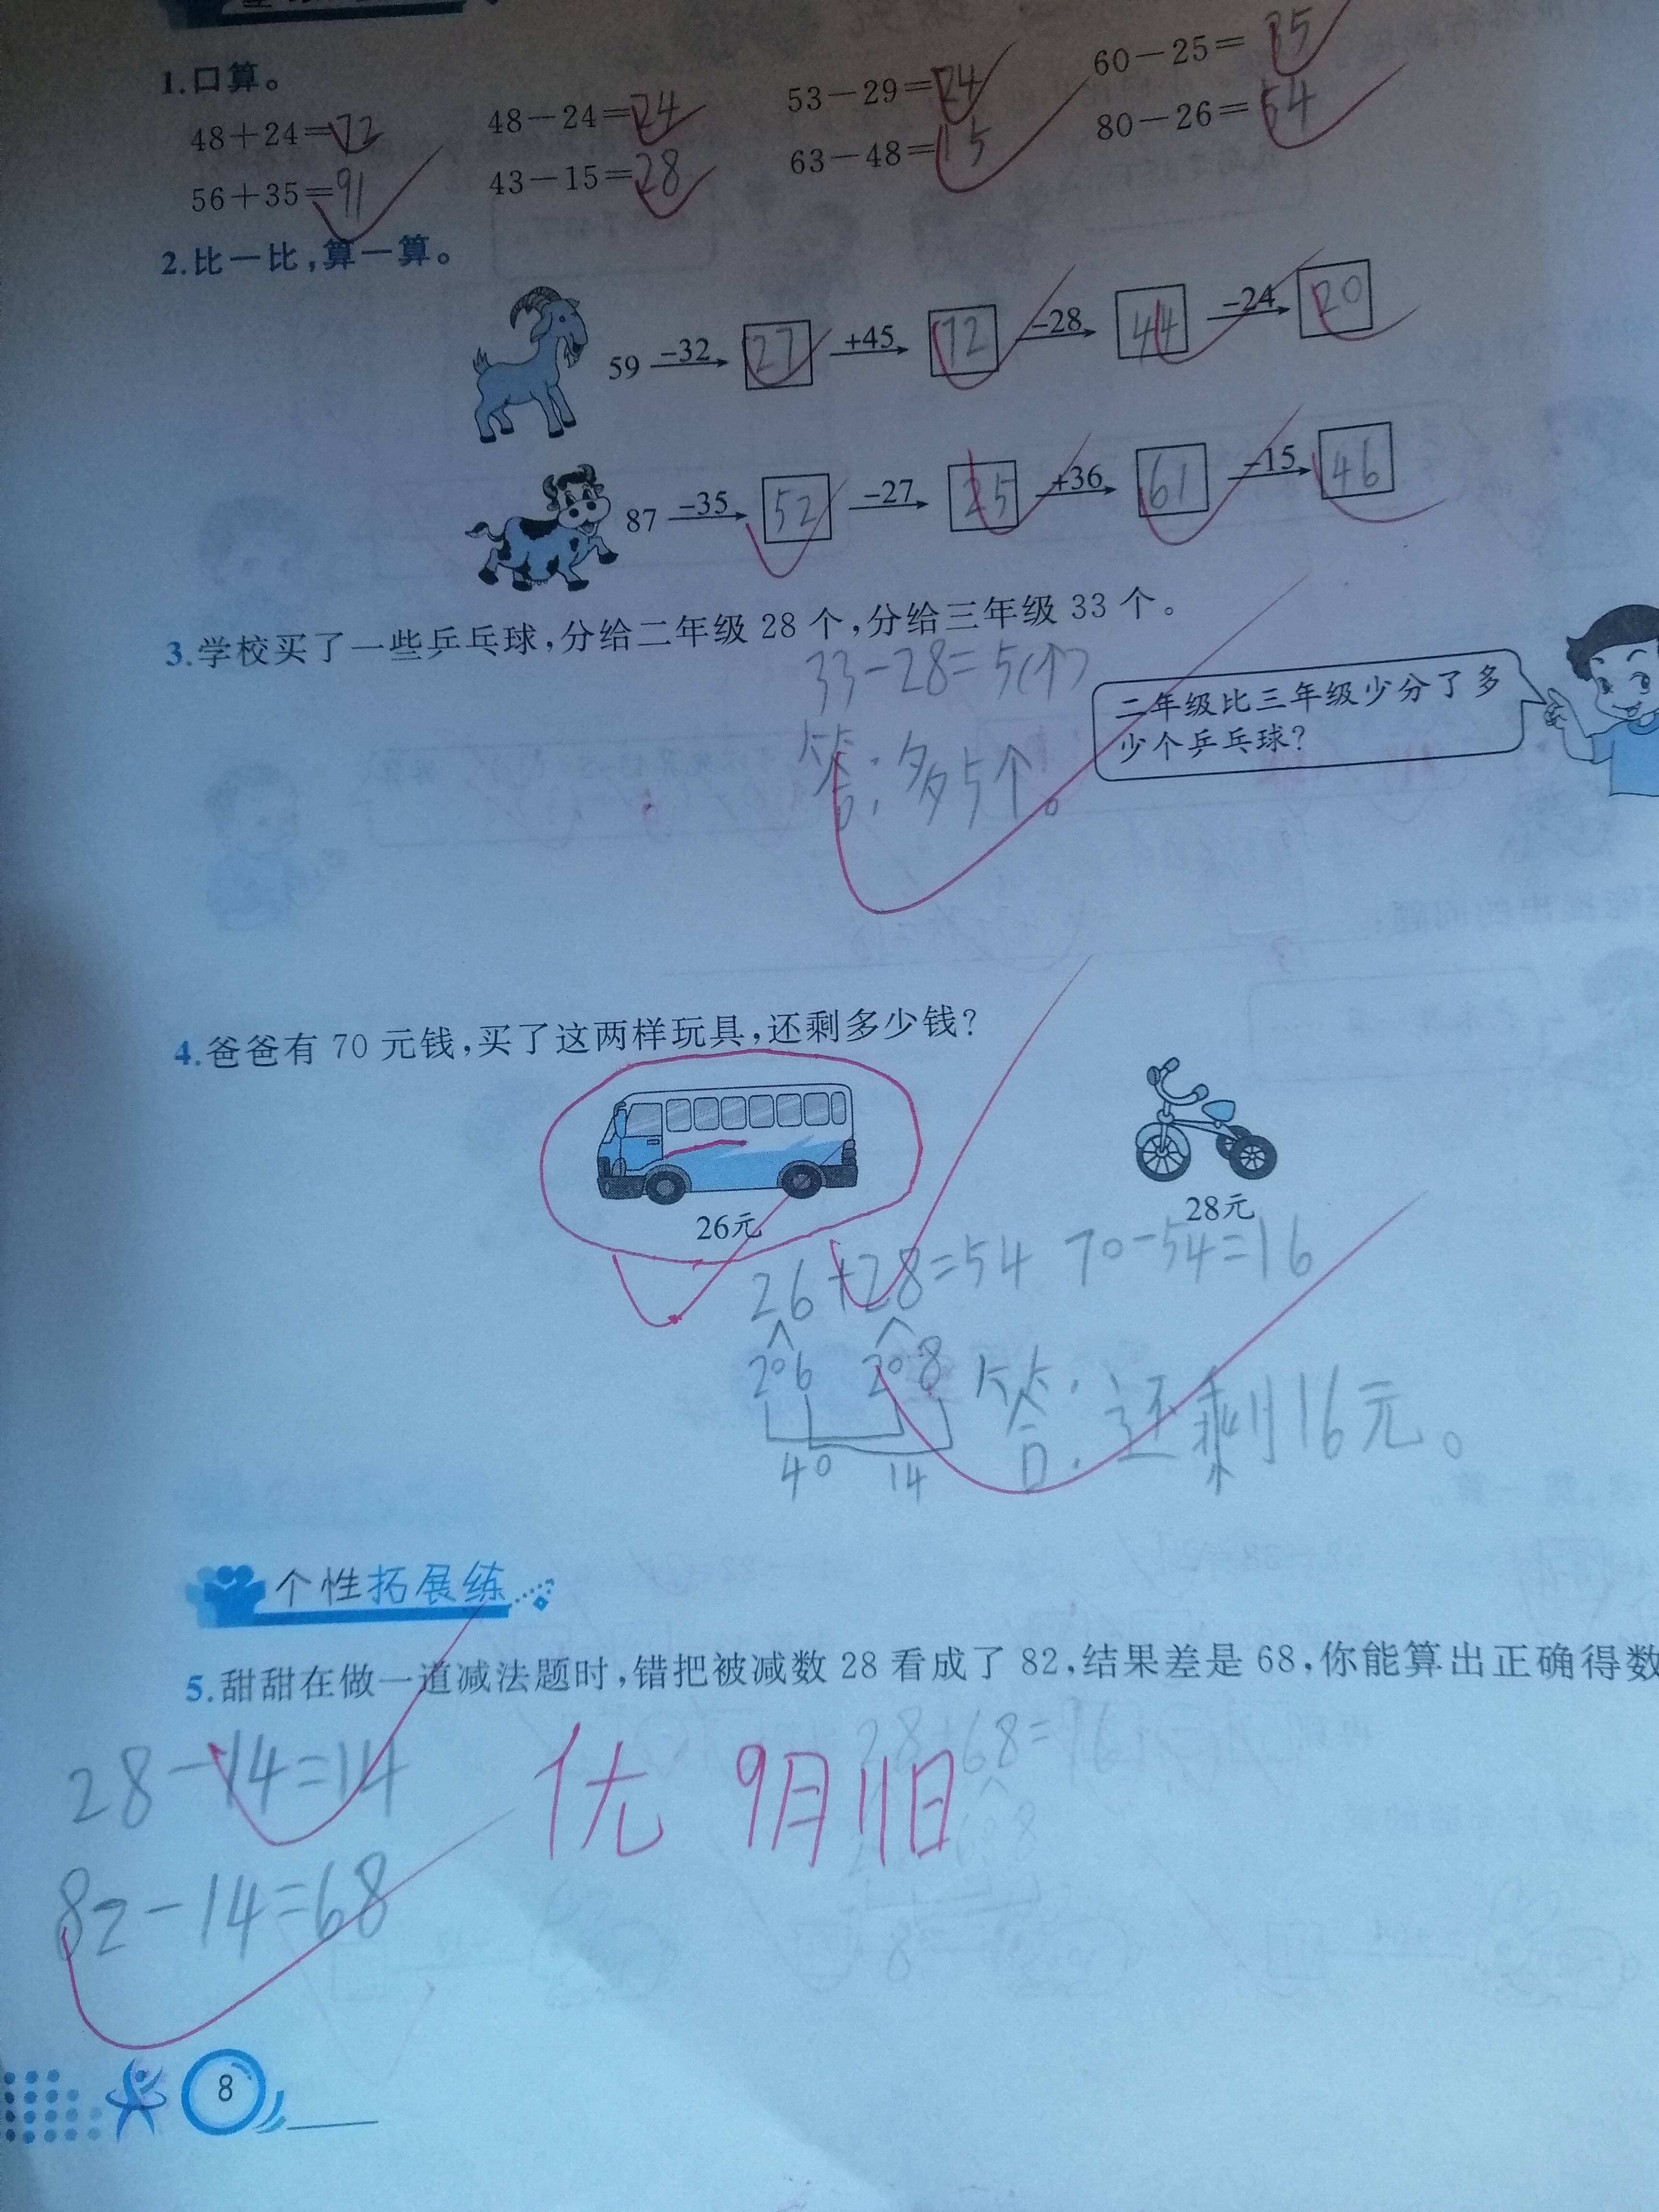 1.口算。
48+24=72 48-24=24 53-29=24 60-25=35
56+35=91 43-15=28 63-48=15 80-26=54
2.比一比,算一算。
59 -32 27 +45 72 -28 44 -24 20
87 -35 52 -27 25 +36 61 -15 46
3.学校买了一些乒乓球,分给二年级 28 个,分给三年级 33 个。
33-28=5(个)
二年级比三年级少分了多
少个乒乓球?
答:多5个。
4.爸爸有 70 元钱,买了这两样玩具,还剩多少钱?
26元
28元
26+28=54 70-54=16
20 6 20 8
答:还剩16元。
40 14
个性拓展练
5.甜甜在做一道减法题时,错把被减数 28 看成了 82,结果差是 68,你能算出正确得数
28+68=96
28-14=14
优 9月11日
82-14=68
8